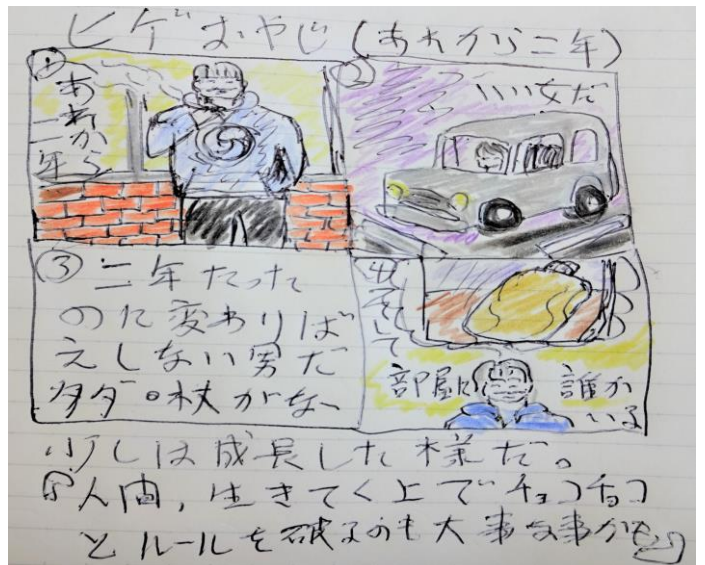 ヒゲおやじ(あれから二年)
①
あれから
二年
②
いい女だ
③二年たった
のに変わりば
えしない男だ
タダ。杖がない
④
そして
部屋に
誰か
いる
少しは成長した様だ。
『人間,生きてく上でチョコチョコ
とルールを破るのも大事な事かも』